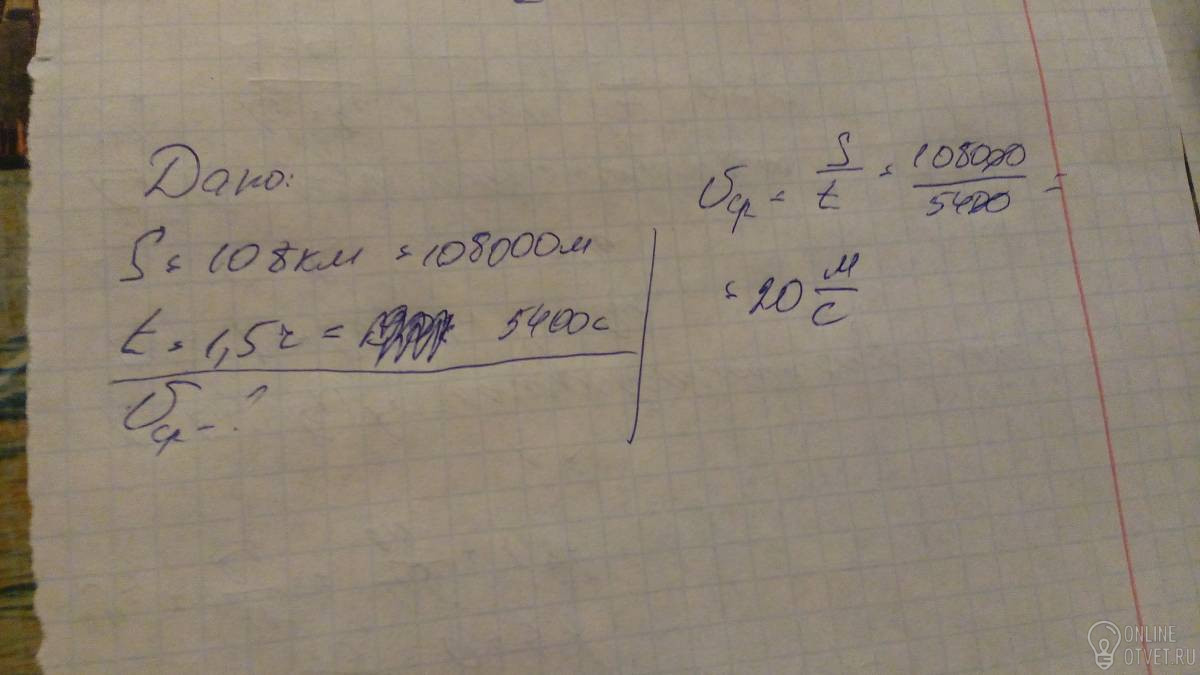 Дано:
S = 108км = 108000м
t = 1,5ч = 5400с
υср - ?
υср = S/t = 108000/5400 =
= 20 м/с
ONLINE
OTVET.RU